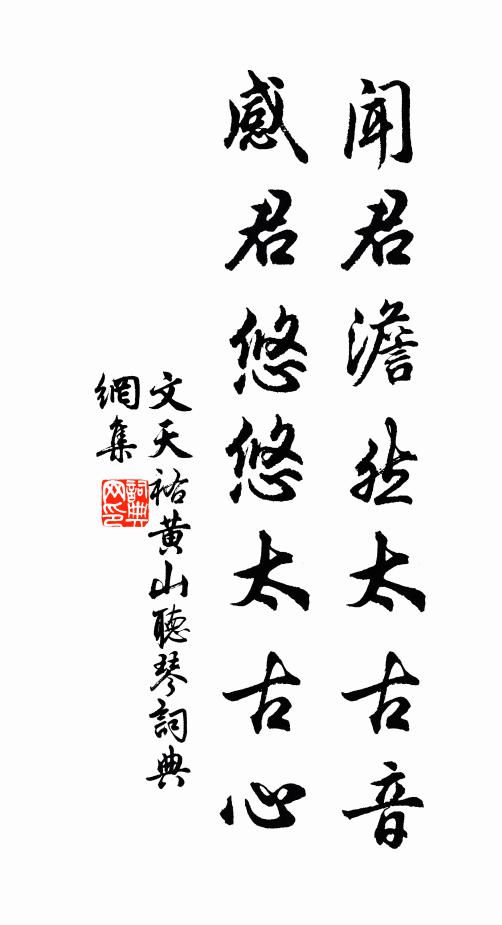 闻君澹然太古音
感君悠悠太古心
文天祐黄山聽琴詞典
網集
詞典
网印